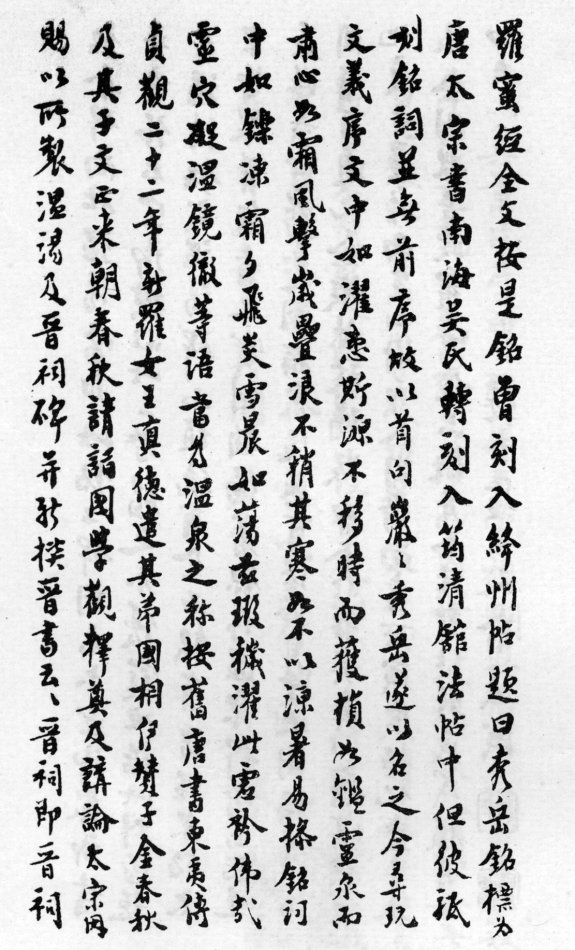 羅蜜經全文按是銘曾刻入絳州帖題曰秀岳銘標為
唐太宗書南海吳氏轉刻入筠清館法帖中但彼祇
刻銘詞並無前序故以首句巖〻秀岳遂以名之今尋玩
文義序文中如濯患斯源不移時而獲損如鑑靈泉而
肅心如霜風擊嵗疊浪不稍其寒如不以涼暑易操銘詞
中如鑠凍霜夕飛炎雪晨如蕩茲瑕穢濯此虛衿偉哉
靈穴凝溫鏡徹等語當為溫泉之稱按舊唐書東夷傳
貞觀二十二年新羅女王真德遣其弟國相伊贊子金春秋
及其子文正來朝春秋請詣國學觀釋奠及講論太宗因
賜以所製溫湯及晉祠碑并新撰晉書云〻晉祠即晉祠